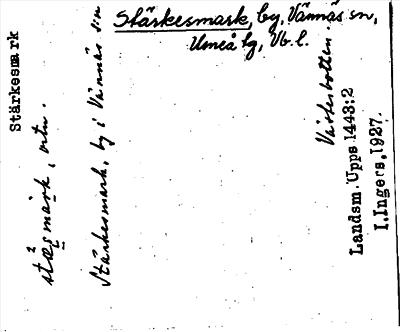 Stärkesmark, by, Vännäs sn,
Umeå tg, Vb. l.
Stärkesmark
, ortn.
Stärkesmark, by i Vännäs sn
Västerbotten.
Landsm. Upps 1443:2
I. Ingers, 1927.